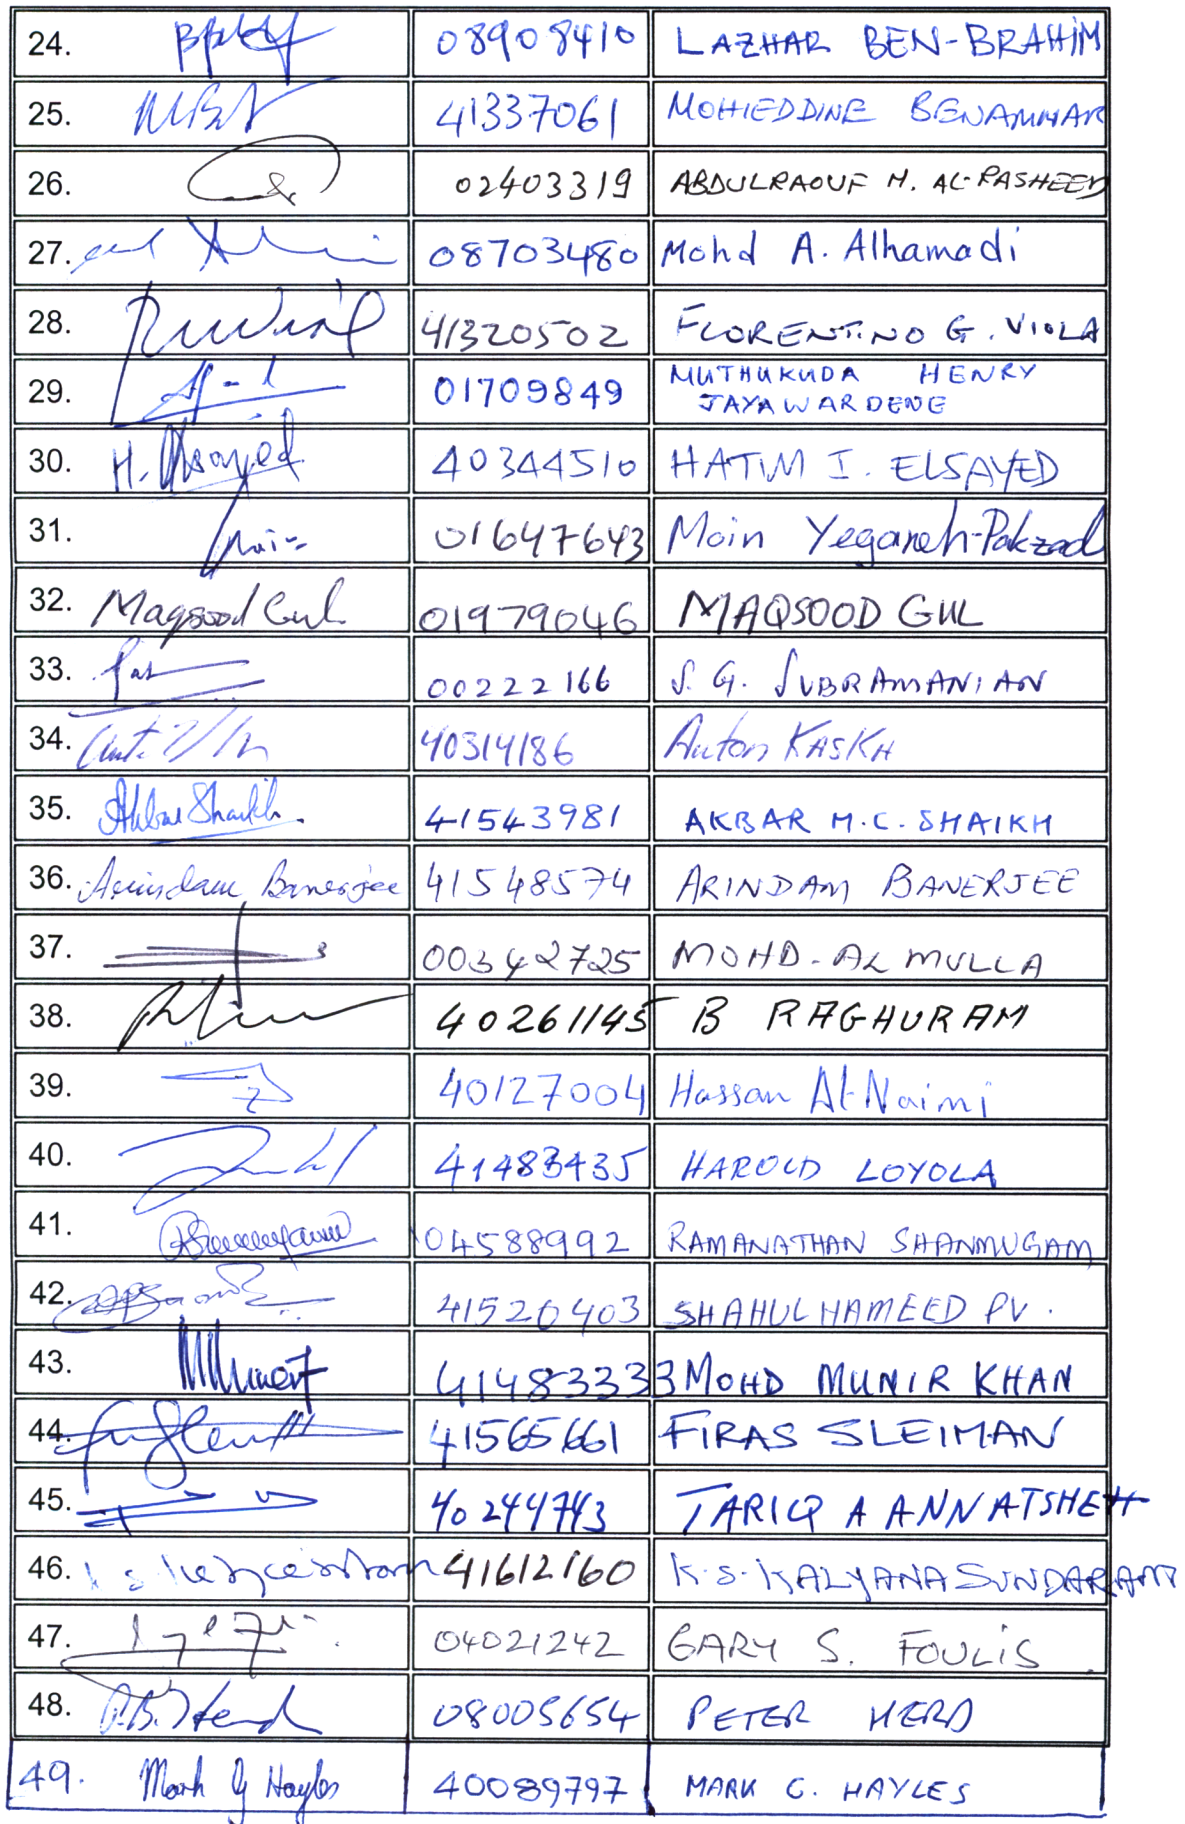 24. 08908410 LAZHAR BEN-BRAHIM
25. 41337061 MOHIEDDINE BENAMMAR
26. 02403319 ABDULRAOUF M. AL-RASHEED
27. 08703480 Mohd A. Alhamadi
28. 41320502 FLORENTINO G. VIOLA
29. 01709849 MUTHUKUDA HENRY
JAYAWARDENE
30. H. Elsayed 40344510 HATIM I. ELSAYED
31. 01647643 Moin Yeganeh-Pakzad
32. Maqsood Gul 01979046 MAQSOOD GUL
33. 00222166 S. G. SUBRAMANIAN
34. 40314186 Anton KASKA
35. Akbar Shaikh. 41543981 AKBAR M.C. SHAIKH
36. Arindam Banerjee 41548574 ARINDAM BANERJEE
37. 00342725 MOHD-AL MULLA
38. 40261145 B RAGHURAM
39. 40127004 Hassan Al-Naimi
40. 41483435 HAROLD LOYOLA
41. 04588992 RAMANATHAN SHANMUGAM
42. 41520403 SHAHUL HAMEED PV.
43. 41483333 MOHD MUNIR KHAN
44. 41565661 FIRAS SLEIMAN
45. 40244743 TARIQ A ANNATSHEH
46. 41612160 K.S.KALYANASUNDARAM
47. 04021242 GARY S. FOULIS
48. P.B. Herd 08005654 PETER HERD
49. Mark G Hayles 40089797 MARK G. HAYLES